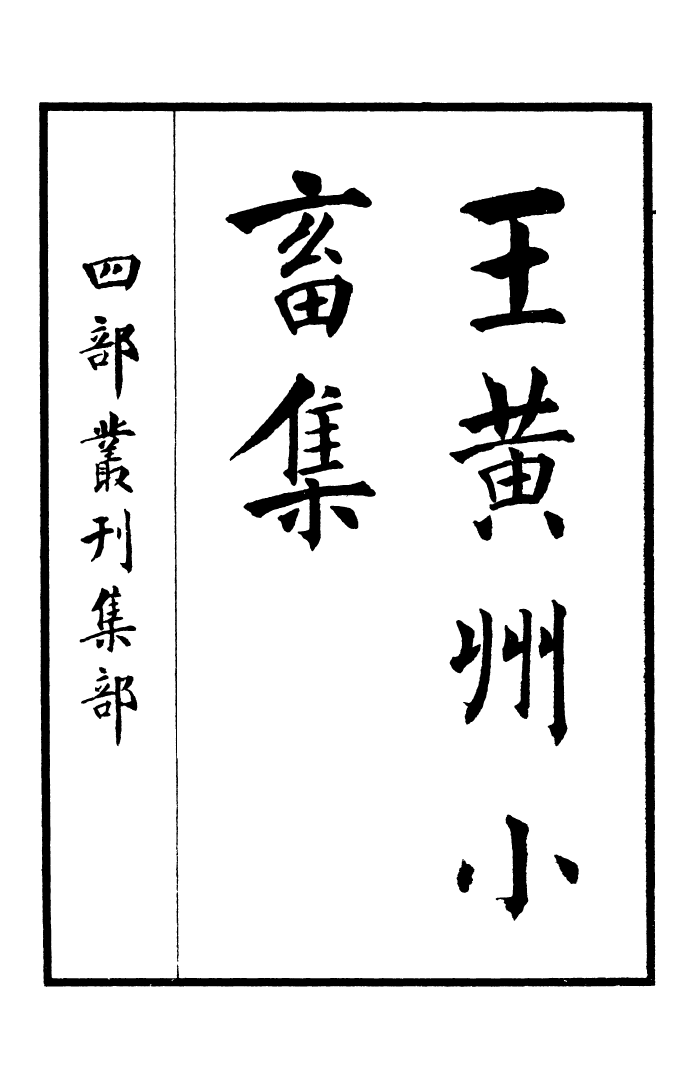 王黄州小
畜集
四部叢刊集部